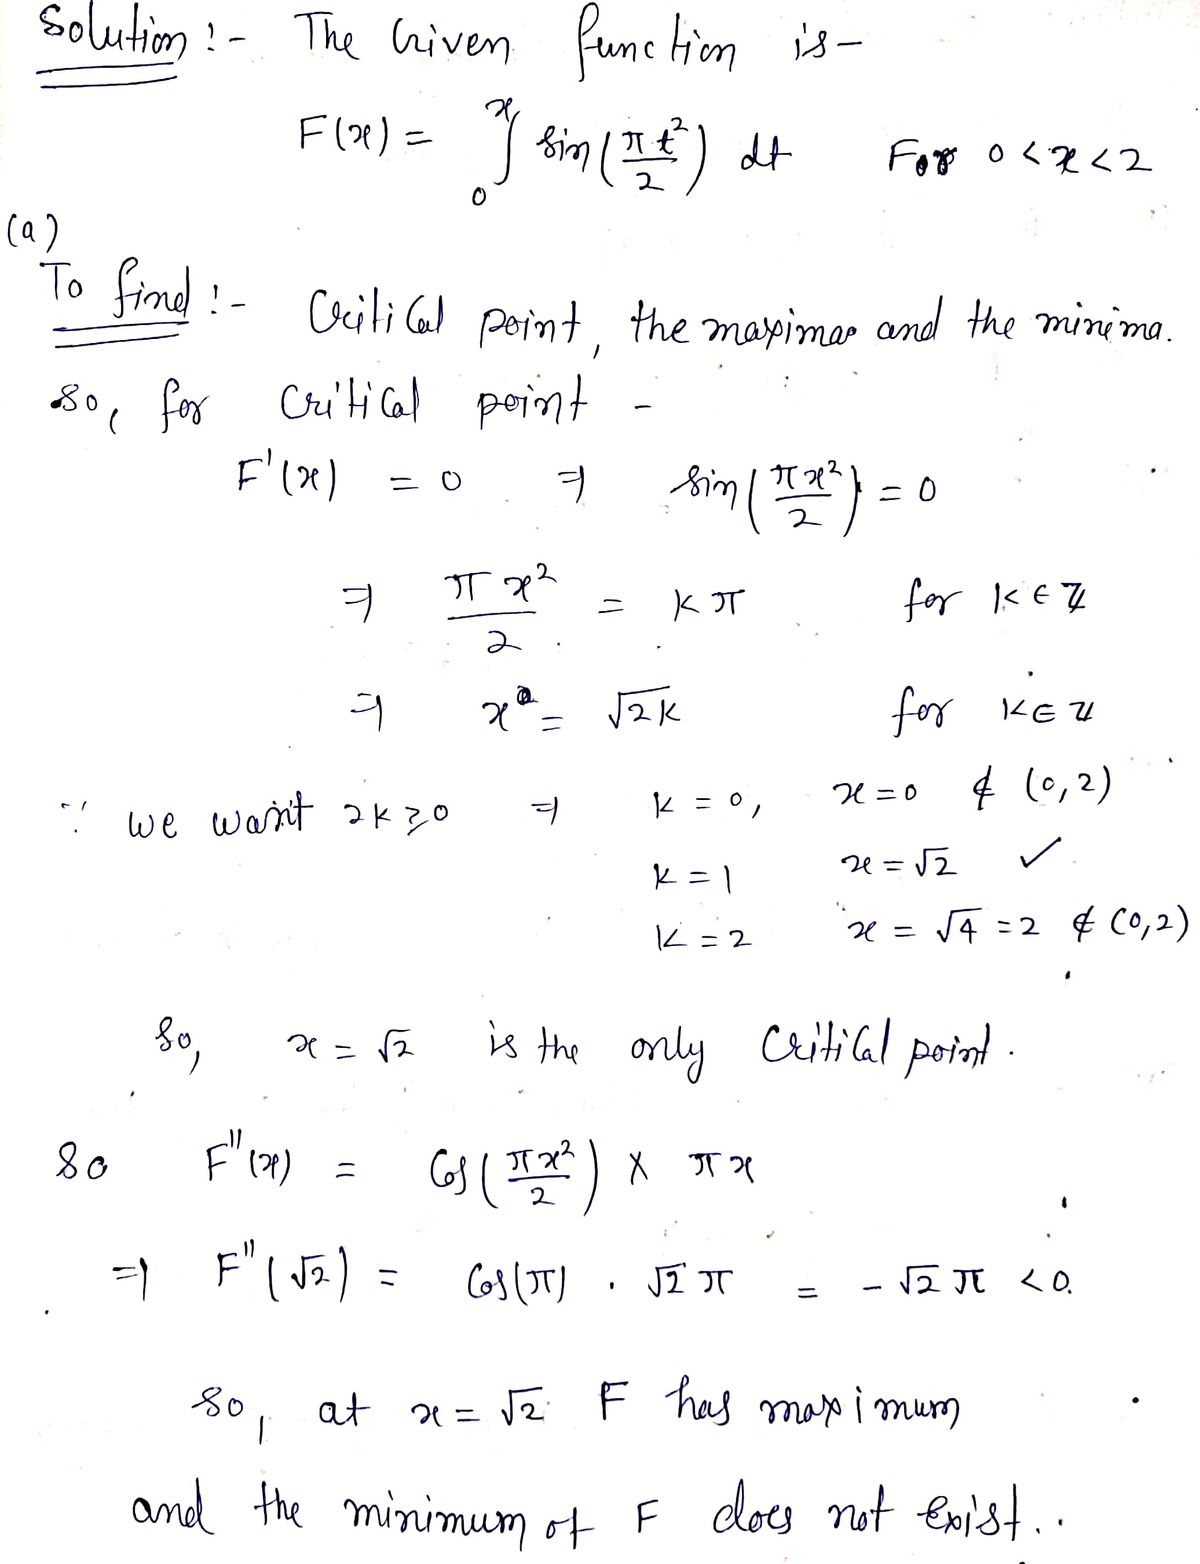 Solution :- The Given function is -
F(x) = ∫₀ˣ sin(πt²/2) dt For 0 < x < 2
(a)
To find :- Critical point, the maximas and the minima.
so, for Critical point -
F'(x) = 0 ⇒ sin(πx²/2) = 0
⇒ πx²/2 = kπ for k ∈ ℤ
⇒ x = √2k for k ∈ ℤ
∵ we want 2k ≥ 0 ⇒ k = 0, x = 0 ∉ (0,2)
k = 1 x = √2 ✓
k = 2 x = √4 = 2 ∉ (0,2)
So, x = √2 is the only Critical point.
So F''(x) = Cos(πx²/2) × πx
⇒ F''(√2) = Cos(π) . √2 π = - √2 π < 0.
So, at x = √2 F has maximum
and the minimum of F does not Exist..